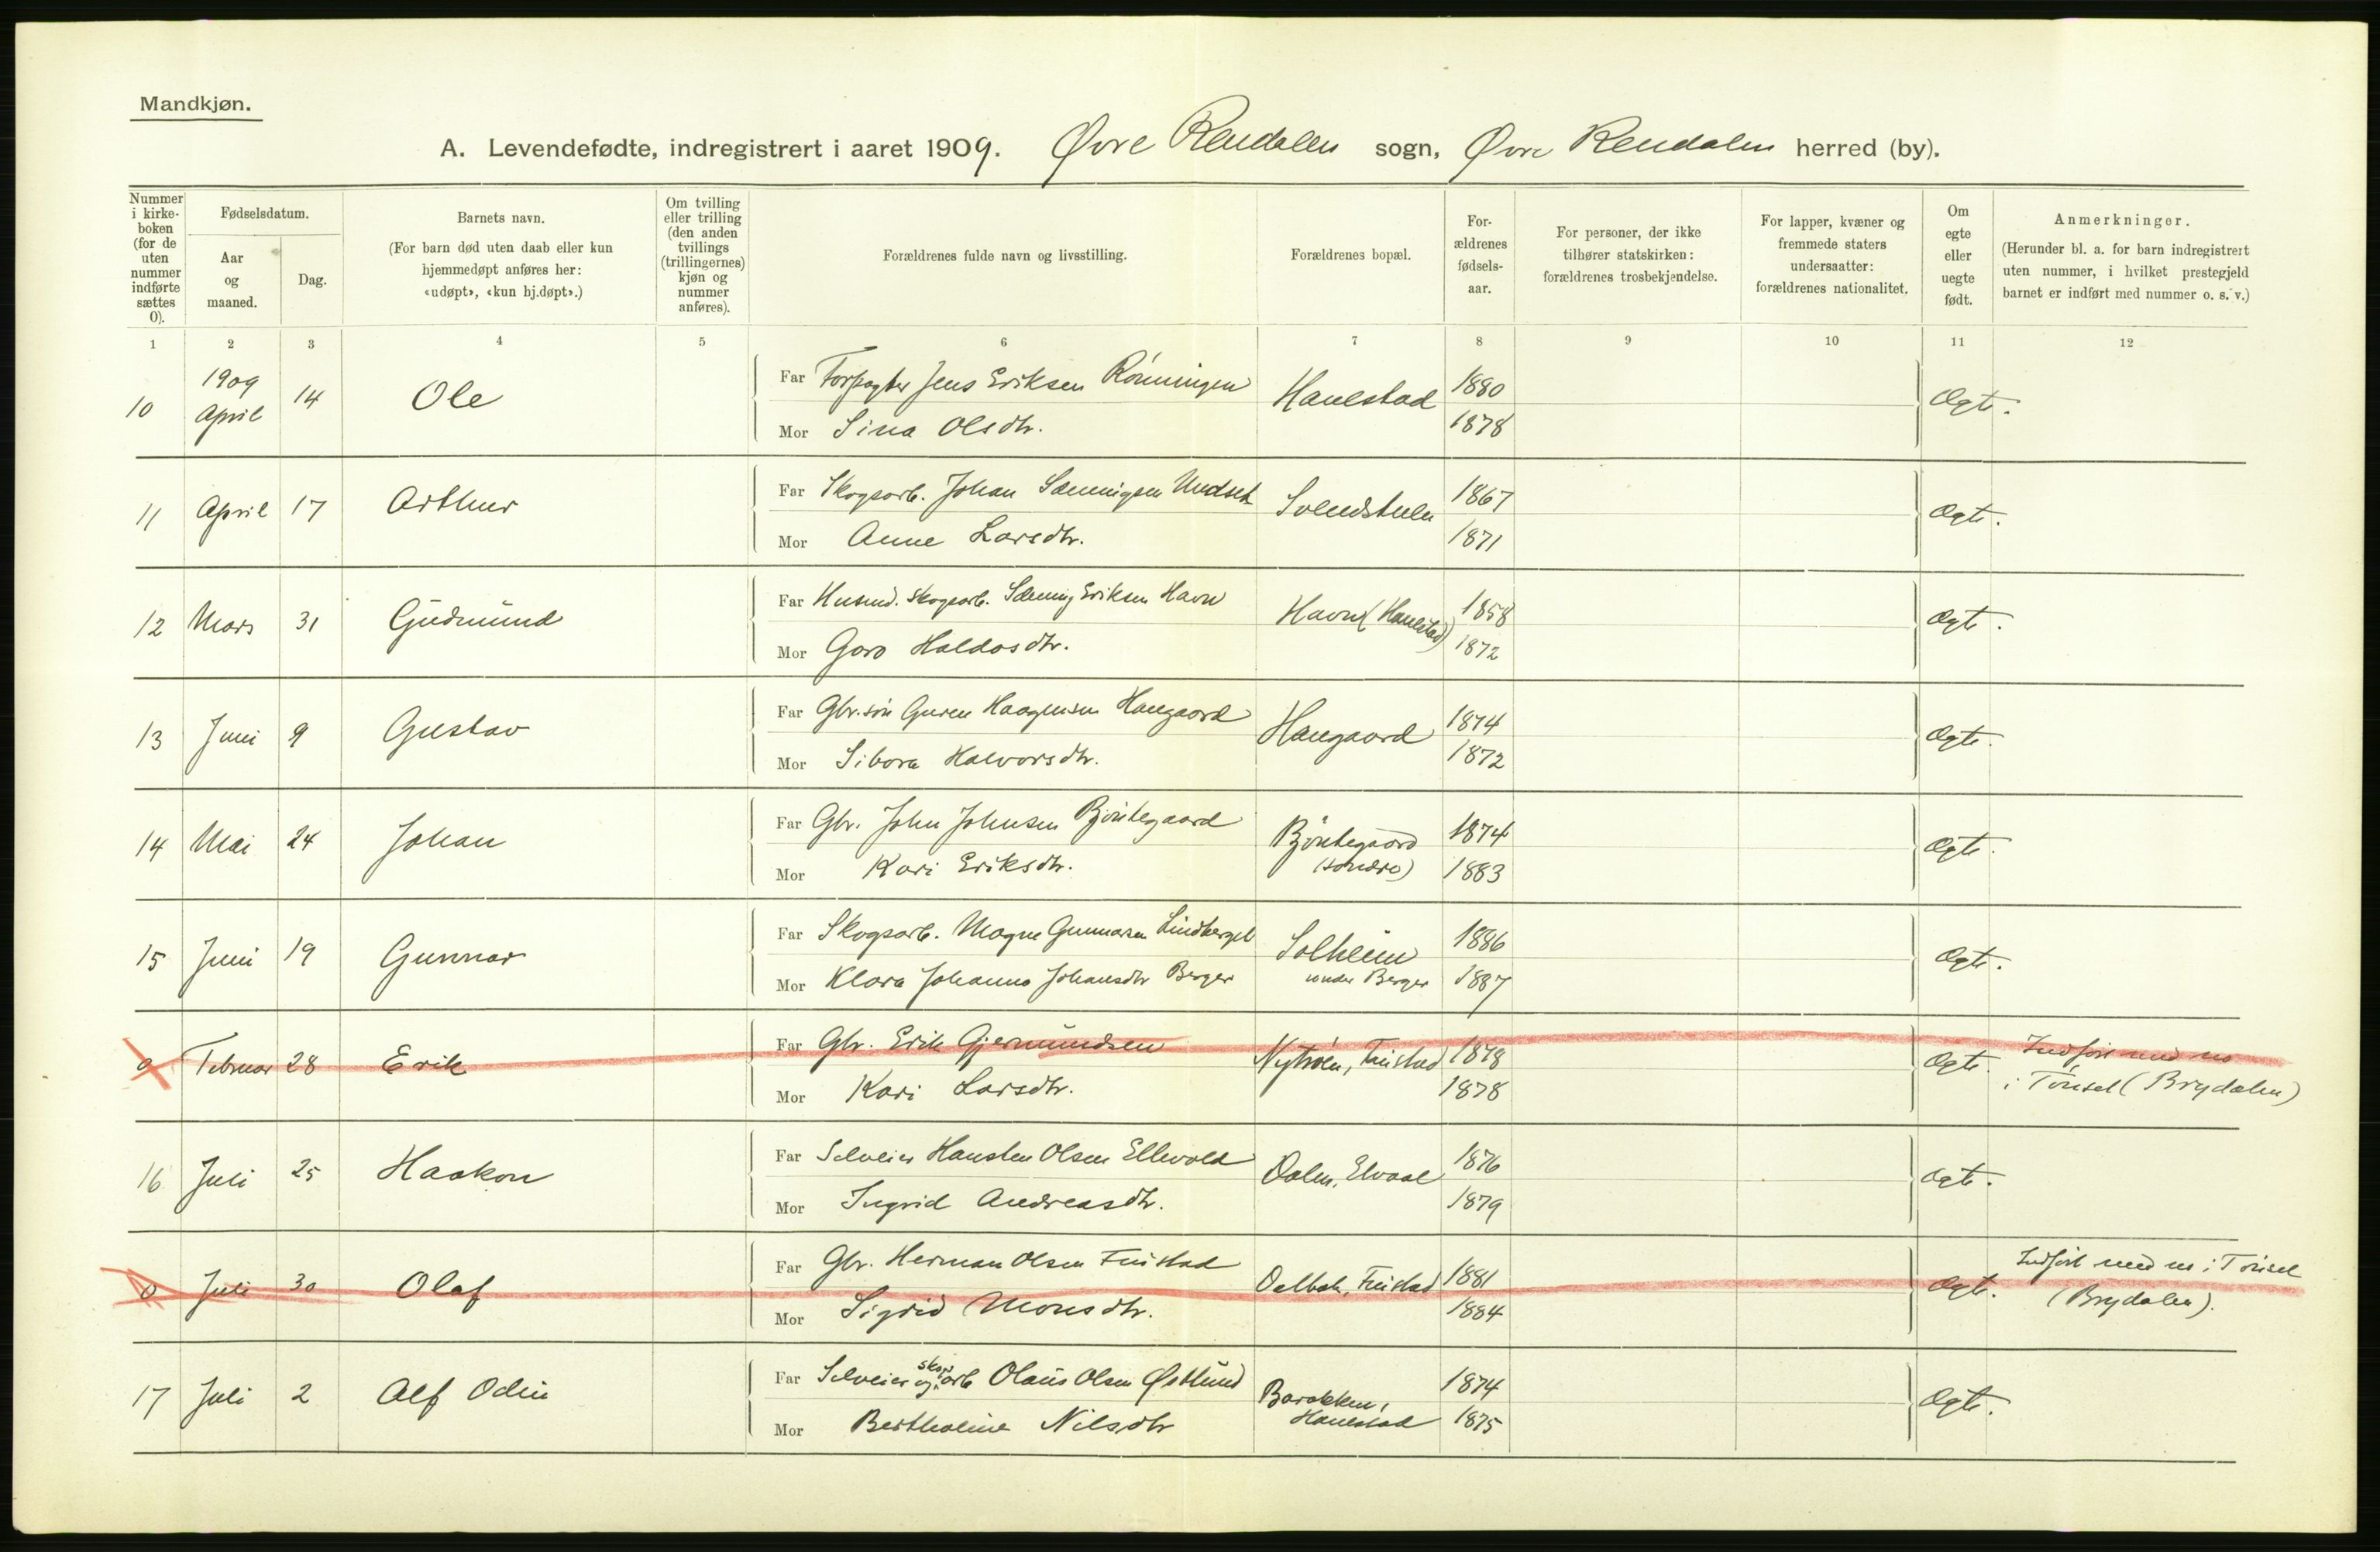 Mandkjøn.
A. Levendefødte, indregistrert i aaret 1909. Øvre Rendalen sogn, Øvre Rendalen herred (by).
Nummer i kirke-boken (for de uten nummer indførte sættes 0).
Fødselsdatum.
Aar og maaned.
Dag.
Barnets navn.
(For barn død uten daab eller kun hjemmedøpt anføres her: «udøpt», «kun hj.døpt».)
Om tvilling eller trilling (den anden tvillings (trillingernes) kjøn og nummer anføres).
Forældrenes fulde navn og livsstilling.
Forældrenes bopæl.
For-ældrenes fødsels-aar.
For personer, der ikke tilhører statskirken: forældrenes trosbekjendelse.
For lapper, kvæner og fremmede staters undersaatter: forældrenes nationalitet.
Om egte eller uegte født.
Anmerkninger.
(Herunder bl. a. for barn indregistrert uten nummer, i hvilket prestegjeld barnet er indført med nummer o. s. v.)
1 2 3 4 5 6 7 8 9 10 11 12
10 1909 April 14 Ole Far Forpagter Jens Eriksen Rönningen Hanestad 1880 Ægte.
Mor Sina Olsdtr. 1878
11 April 17 Arthur Far Skogsarb. Johan Sæmingsen Undset 1867 Ægte.
Mor Anne Larsdtr. 1871
12 Mars 31 Gudmund Far Husmd. Skogsarb. Sæming Eriksen Havn Havn (Hanestad) 1858 Ægte.
Mor Goro Haldosdtr. 1872
13 Juni 9 Gustav Far Gbr.sön Haagensen Haugaard Haugaard 1874 Ægte.
Mor Sibora Halvorsdtr. 1872
14 Mai 24 Johan Far Gbr. John Johnsen Björtegaard Björtegaard (söndre) 1874 Ægte.
Mor Kari Eriksdtr. 1883
15 Juni 19 Gunnar Far Skogsarb. Magne Gunnarsen Solheim under Berger 1886 Ægte.
Mor Klara Johanna Johansdtr Berger 1887
0 Februar 28 Erik Far Gbr. Erik Gjermundsen Nytröen, Finstad 1878 Ægte. Indfört med no
Mor Kari Larsdtr. 1878 i Tönset (Brydalen)
16 Juli 25 Haakon Far Selveier Hansten Olsen Ellevold Dalen, Elvaal 1876 Ægte.
Mor Ingrid Andreasdtr. 1879
0 Juli 30 Olaf Far Gbr. Herman Olsen Finstad Dalbak, Finstad 1881 Ægte. Indfört med no i Tönset
Mor Sigrid Monsdtr. 1884 (Brydalen).
17 Juli 2 Alf Odin Far Selveier og skogarb Olaus Olsen Østlund Barakken, Hanestad 1874 Ægte.
Mor Bertholine Nilsdtr 1875